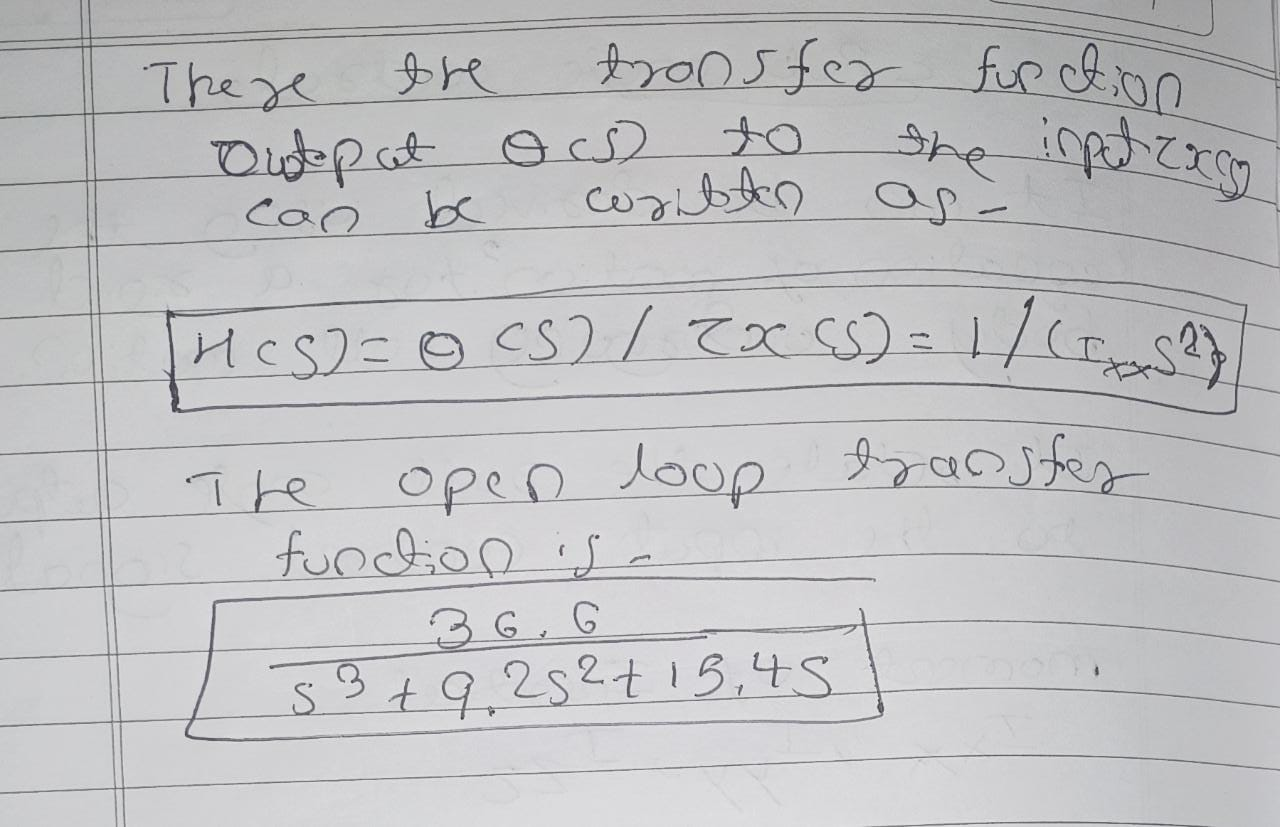 There the transfer function
Output θ(s) to the input τx(s)
can be written as -
H(s) = θ(s) / τx(s) = 1/(Ixxs²)
The open loop transfer
function is -
36.6
s³ + 9.2s² + 15.4s